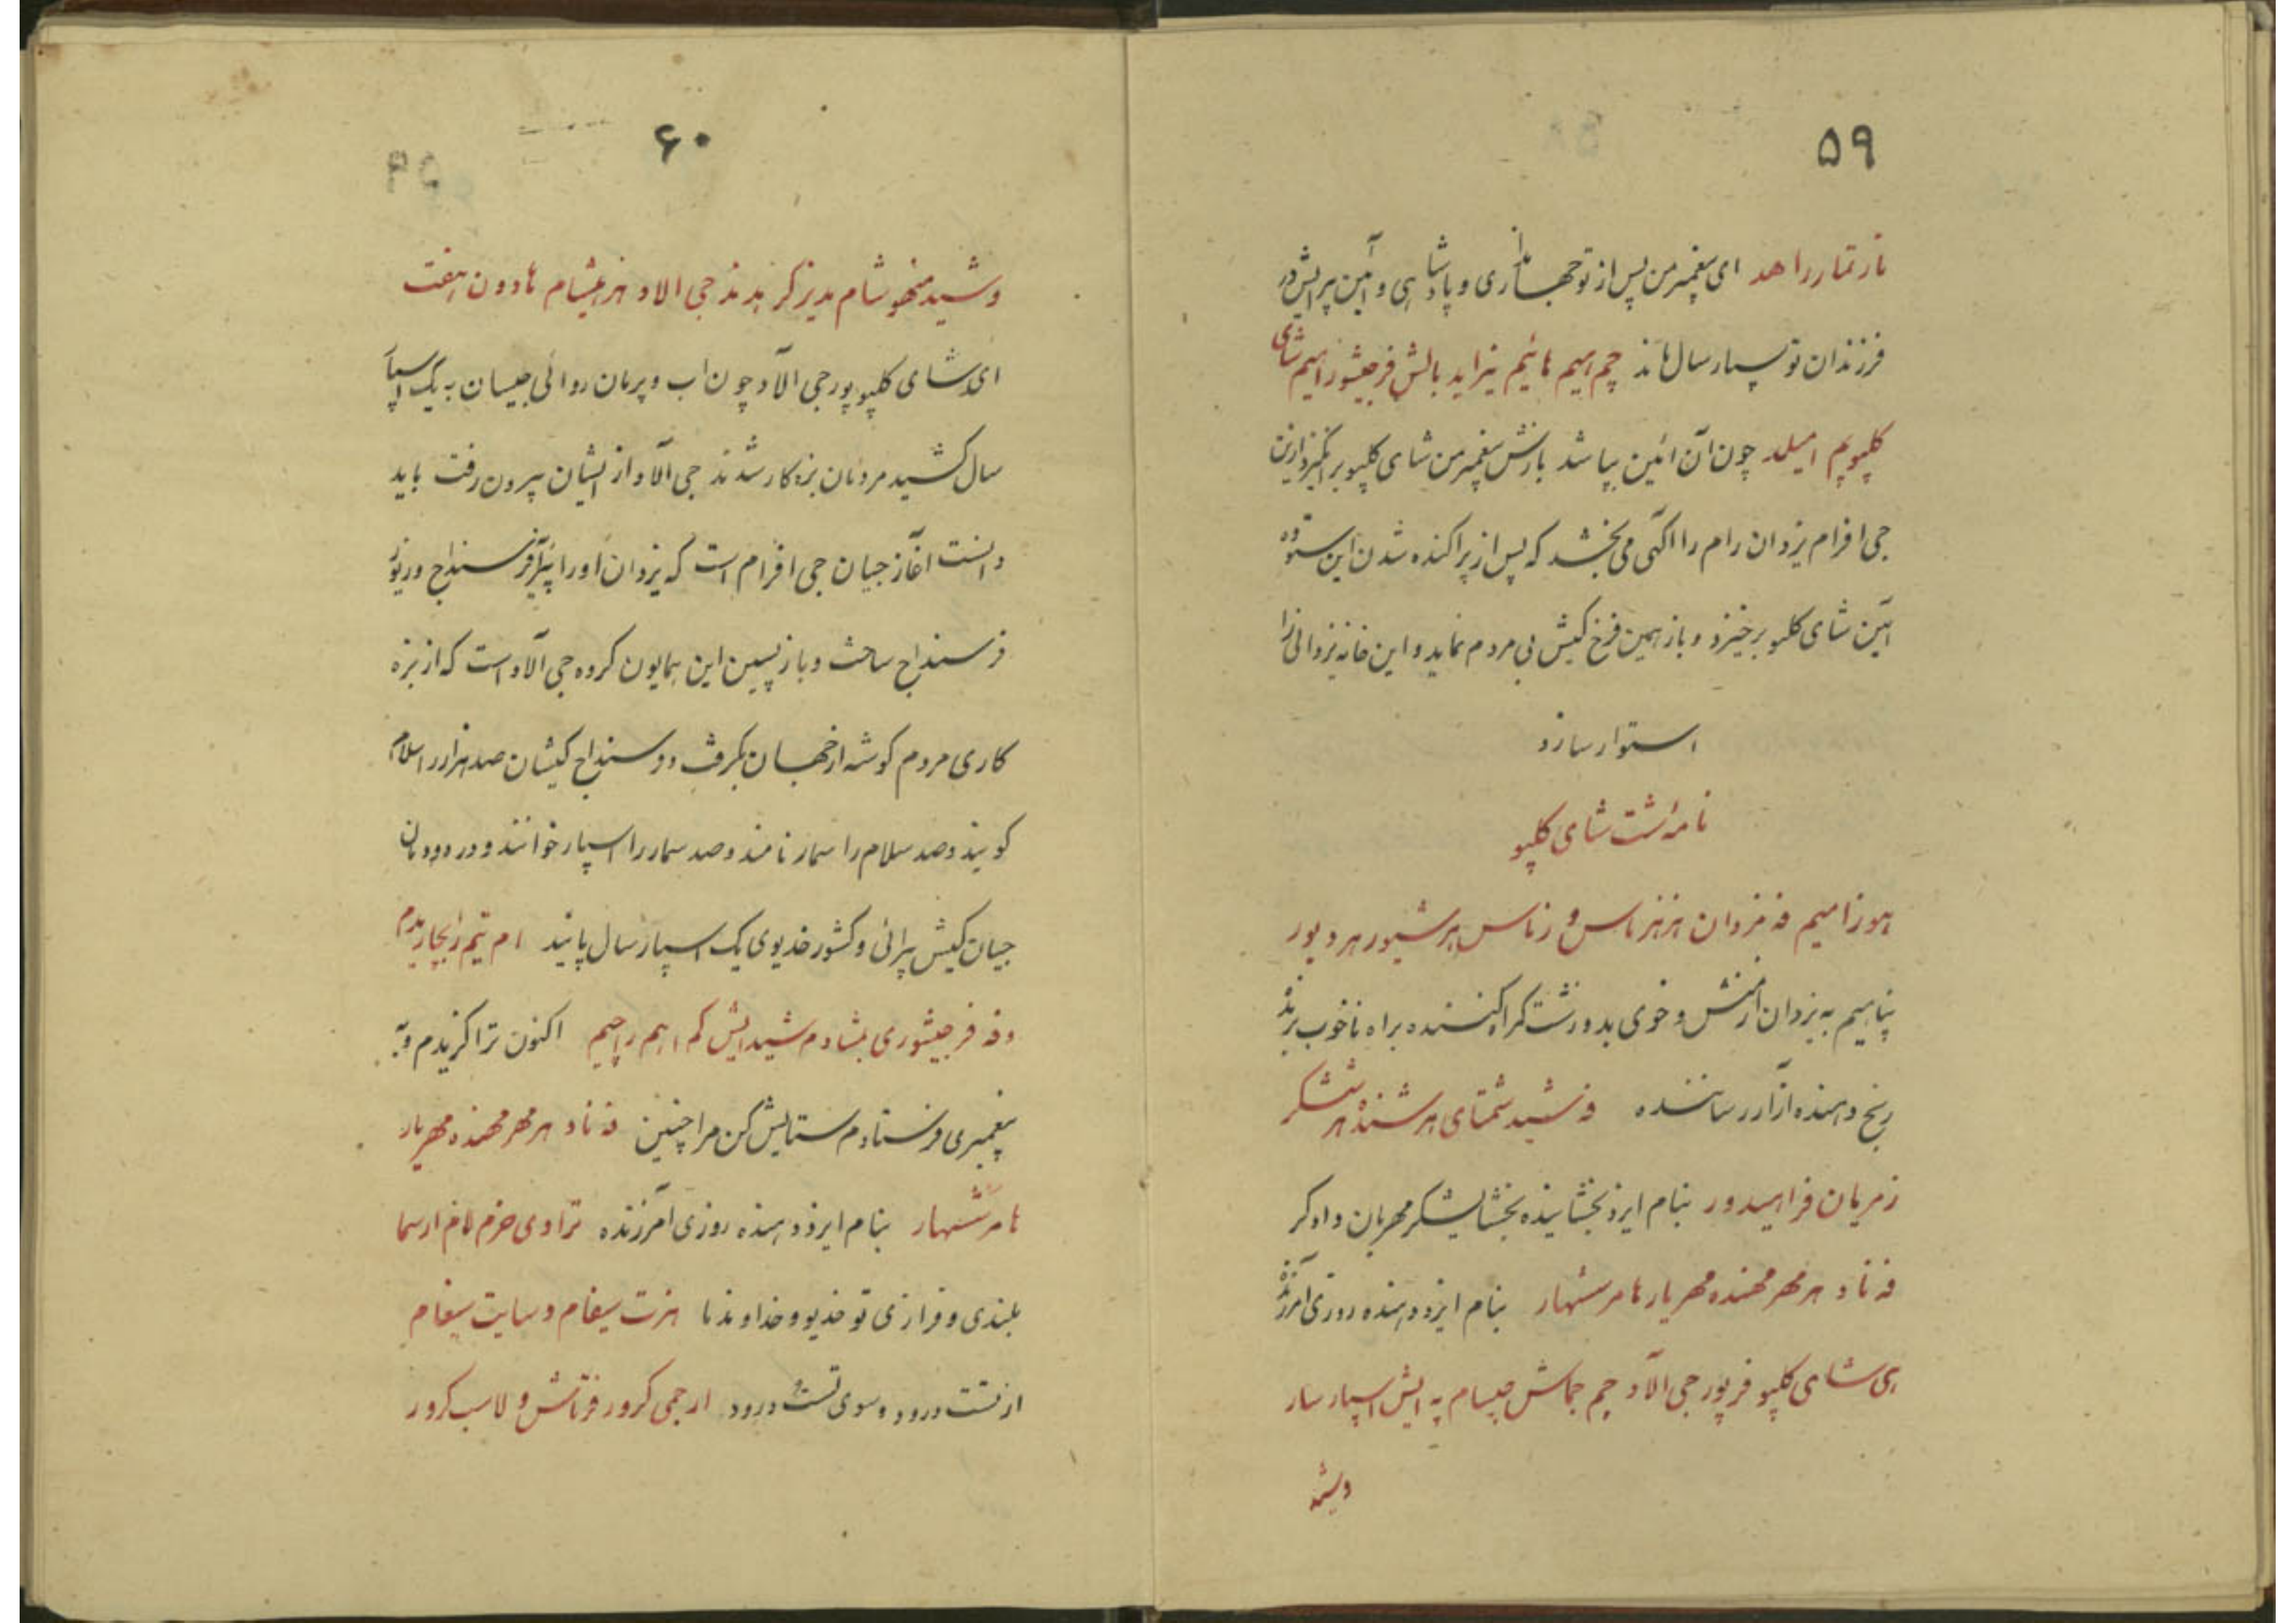 ۵۹
تازتمار راهد ای پیغمبر من پس از تو جهانداری و پادشاهی و آئین پرایش در
فرزندان تو سپار سال ماند چم اهیم هائیم نیزاید بالش فرجیشور اهیم شای
کلیو پم امیلد چون آن ائین بپا شد بازش پیغمبر من شای کلیو برانگیزد ازین
جی افرام یزدان رام را آگهی می بخشد که پس از پراکنده شدن این ستوده
آئین شای کلیو برخیزد و باز همین فرخ کیش بی مردم نماید و این خانه یزدانی را
استوار سازد
نامه شت شای کلیو
هوزامیم فه مزدان هزهزماس و زماس هرشیور هردیور
پناهیم به یزدان از منش و خوی بد و زشت گمراه کننده براه ناخوب برنده
رنج دهنده آزار رساننده فه شید شمتای هرشنده هرششگر
زمریان فراهیدور بنام ایزد بخشاینده بخشایشگر مهربان دادگر
فه ناد هر مهر مهنده مهریار هامرشنهار بنام ایزد دهنده روزی آمرزنده
ای شای کلیو فرپور جی الاد چم جماش جیسام په ایش اسپار سار
وشید
۶۰
وشید منهوشام مدیزکر بدند جی الاد هزمیشام هادون هفت
ای شای کلیو پور جی الاد چون آب و پرمان روائی جیسان به یک اسپار
سال کشید مردمان بزه کار شدند جی الاد از ایشان بیرون رفت باید
دانست آغاز جیان جی افرام است که یزدان او را پس از فرسنداج و ریوز
فرسنداج ساخت و باز پسین این همایون گروه جی الاد است که از بزه
کاری مردم گوشه از جهان بگرفت و در فرسنداج کیشان صد هزار را سلام
گویند و صد سلام را سمار نامند و صد سمار را اسپار خوانند و در دودمان
جیان کیش پرائی و کشور خدیوی یک اسپار سال پائید ام تیم را بجاریدم
و فه فرجیشوری بشادم شیدایش کم اهم راجیم اکنون ترا گزیدم و به
پیغمبری فرستادم ستایش کن مرا چنین فه ناد هر مهر مهنده مهریار
هامرشنهار بنام ایزد دهنده روزی آمرزنده تراوی خرم لاخ ارسما
بلندی و فرازی تو خدیو و خداوند ما هزت سیفام و سایت سیفام
از تست درود و سوی تست درود ارجمی کرور فرتاش و لاسب کرور